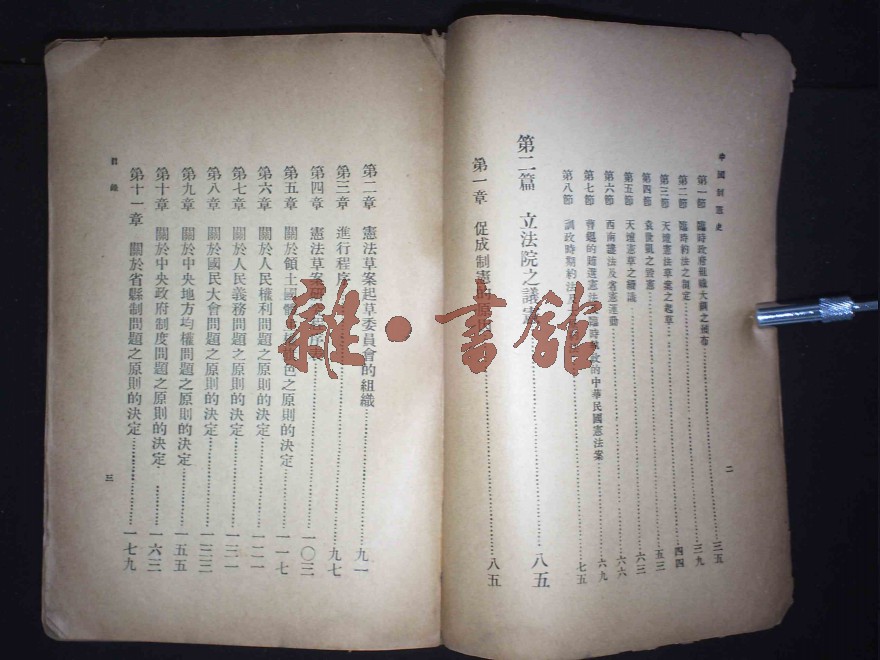 中國制憲史
第一節 臨時政府組織大綱之頒布……三五
第二節 臨時約法之制定……三九
第三節 天壇憲法草案之起草……四四
第四節 袁世凱之毀憲……五三
第五節 天壇憲草之續議……六三
第六節 西南護法及省憲運動……六六
第七節 曹錕的賄選憲法 臨時執政的中華民國憲法案……六九
第八節 訓政時期約法……七五
第二篇 立法院之議憲……八五
第一章 促成制憲的原因……八五
二
目錄
第二章 憲法草案起草委員會的組織……九一
第三章 進行程序……九七
第四章 憲法草案……一〇三
第五章 關於領土國體……色之原則的決定……一一七
第六章 關於人民權利問題之原則的決定……一二一
第七章 關於人民義務問題之原則的決定……一三一
第八章 關於國民大會問題之原則的決定……一三三
第九章 關於中央地方均權問題之原則的決定……一五五
第十章 關於中央政府制度問題之原則的決定……一六三
第十一章 關於省縣制問題之原則的決定……一七九
三
雜·書館